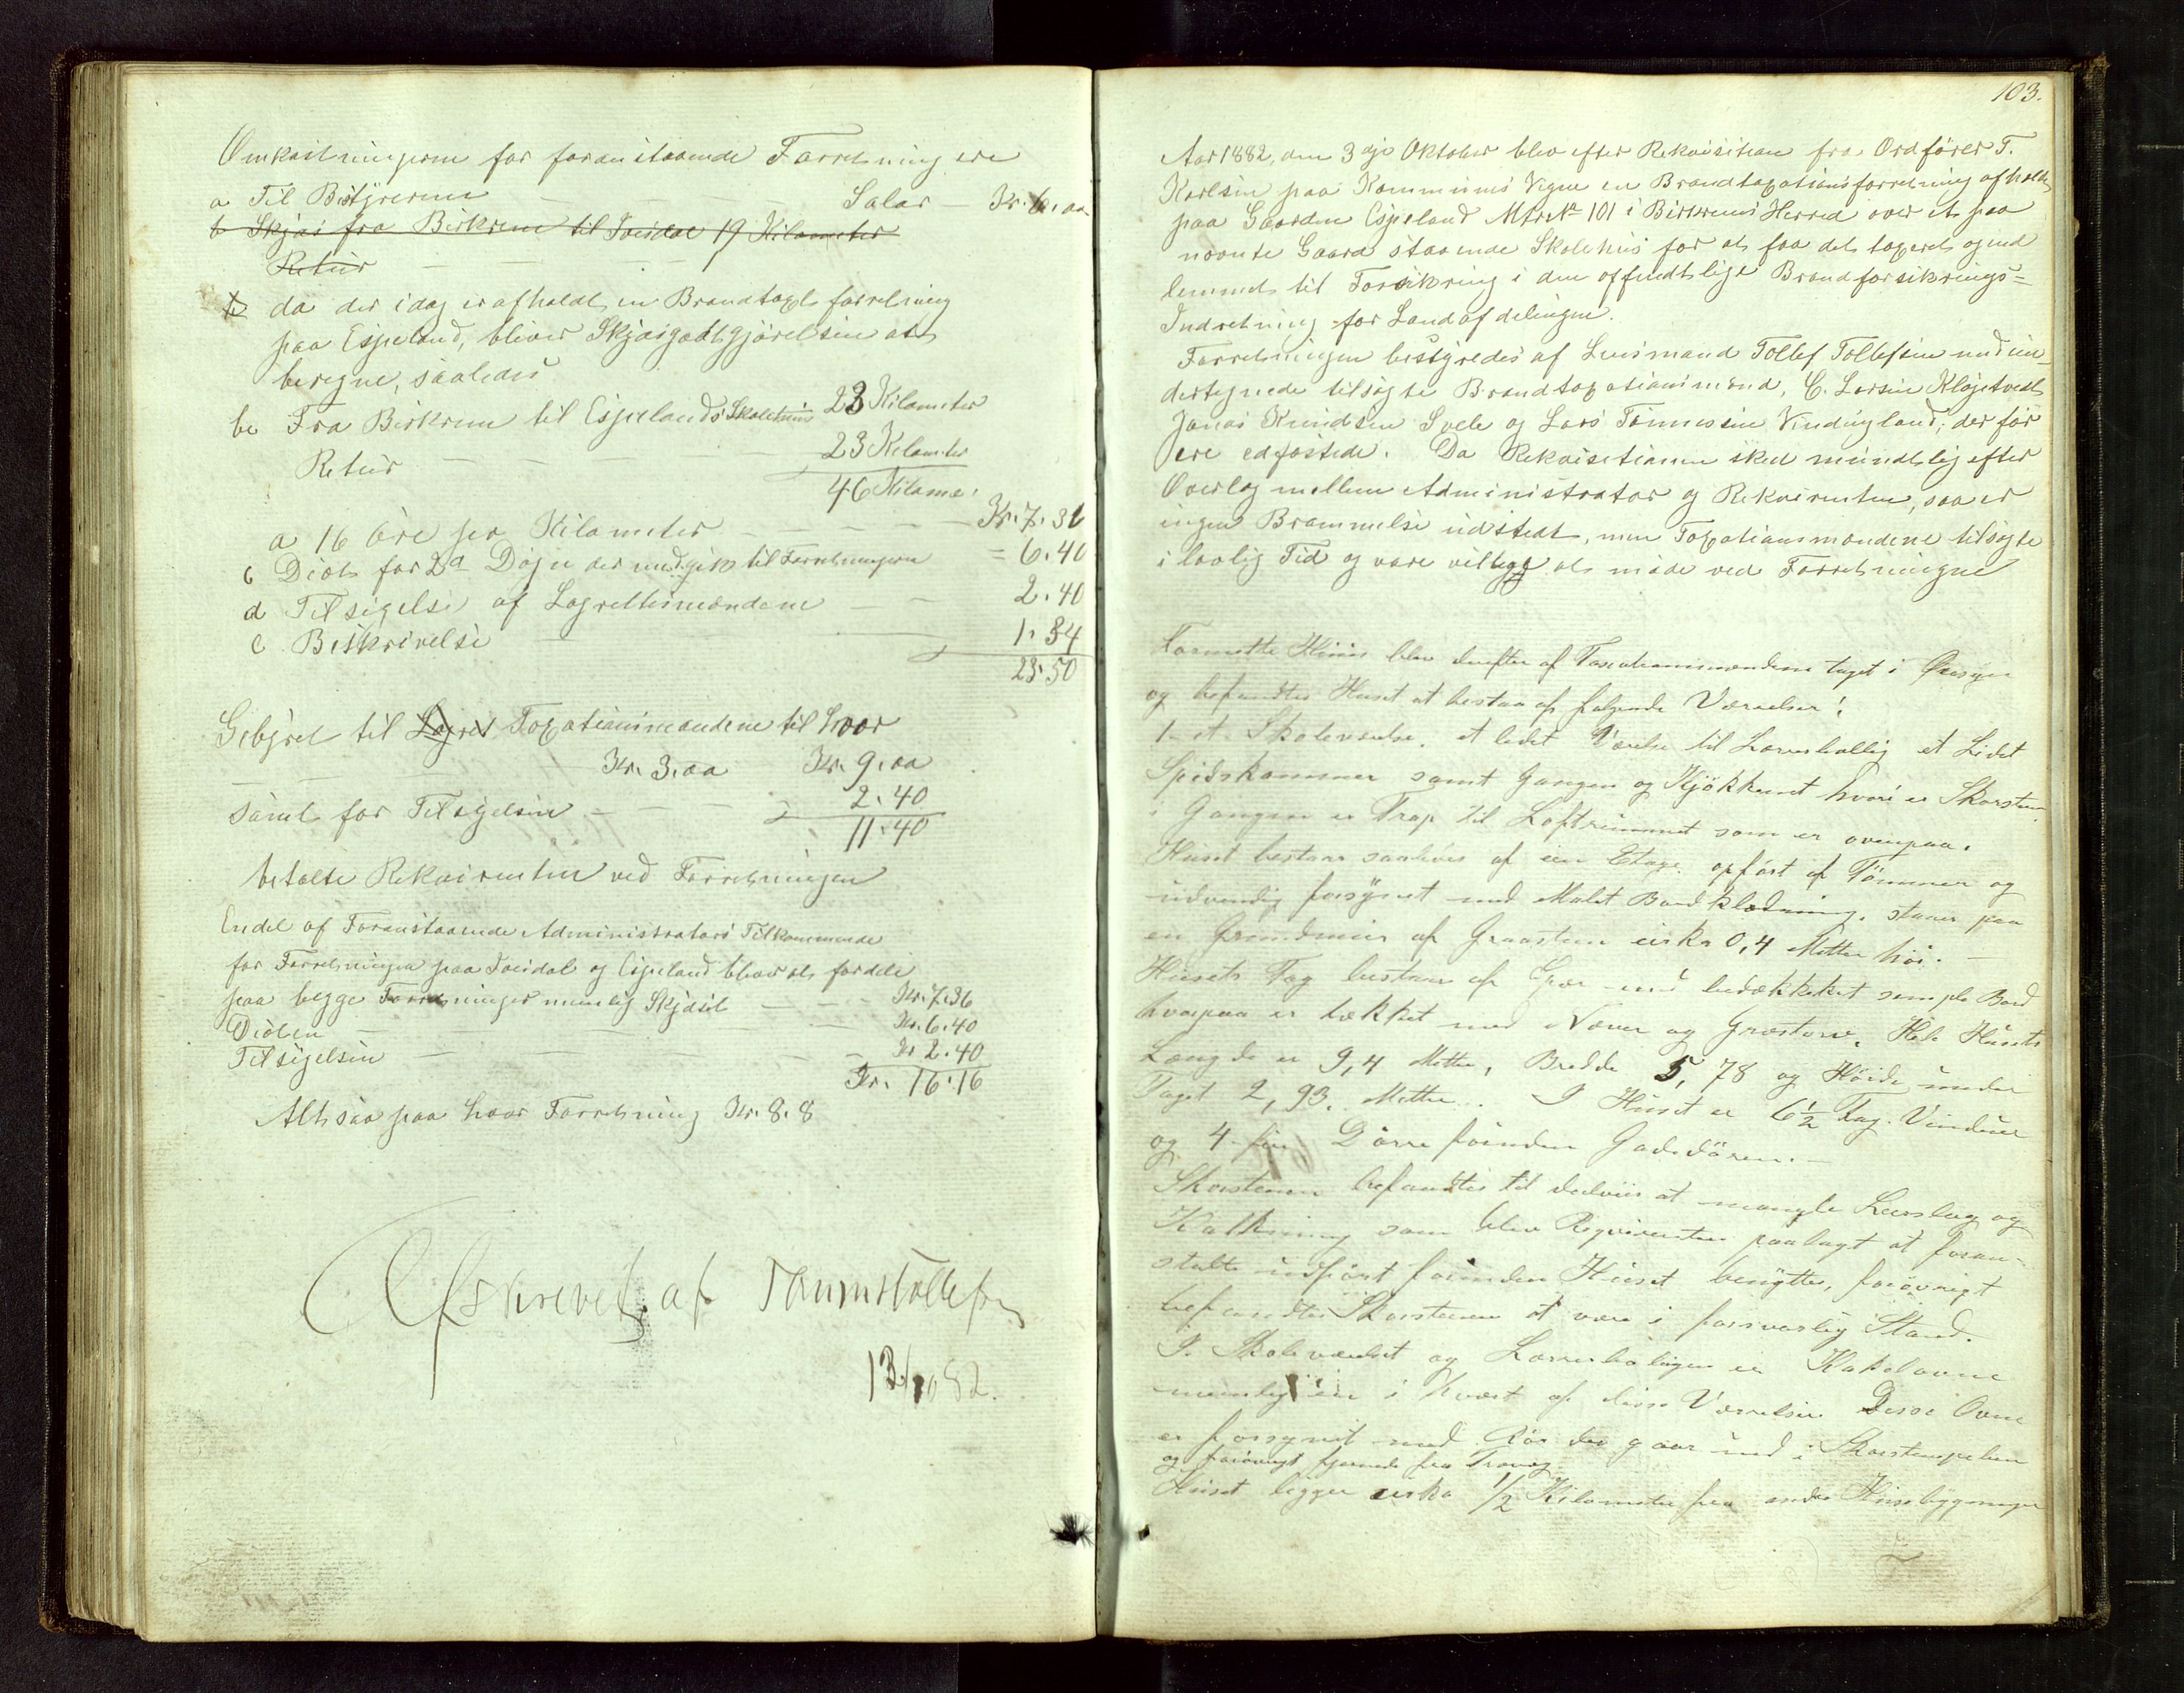 Omkostningerne for foranstaaende Forretning ere
a Til Bestyreren Salar - Kr. 6.00
b Skjds fra Birkrem til Ivesdal 19 Kilometer
Retur
b da der idag er afholdt en Brandtaxt forretning
paa Espeland, bliver Skjdsgodtgjörelsen at
beregne, saaledes
be Fra Birkrem til Espelands Skolehus 23 Kilometer
Retur 23 Kilometer
46 Kilome.
a 16 Öre per Kilometer Kr. 7.36
c Diæt for 2 Døgn der medgik til Forretningerne = 6.40
d Tilsigelse af Lagrettesmændene 2.40
e Beskrivelse 1.34
23.50
Gebyret til Lagret Taxationsmændene til hver
Kr. 3.00 Kr. 9.00
samt for Tilsigelsen 2.40
11.40
betalte Rekvirenten ved Forretningen
Endel af Foranstaaende Administrators Tilkommende
for Forretningen paa Ivesdal og Espeland bliver at fordele
paa begge Forretninger nemlig Skjdset Kr. 7.36
Diæten Kr. 6.40
Tilsigelsen Kr 2.40
Kr. 16.16
Altsaa paa hver Forretning Kr. 8.8
Afskrevet af Tønnes Tollefsen
13/10 82.
103.
Aar 1882, den 3die Oktober blev efter Rekvisition fra Ordfører T.
Karlsen paa Kommunens Vegne en Brandtaxationsforretning afholdt
paa Gaarden Espeland Mtr № 101 i Birkrems Herred over et paa
nævnte Gaard staaende Skolehus for at faa det taxeret og ind
lemmet til Forsikring i den offentlige Brandforsikrings-
Indretning for Landafdelingen.
Forretningen bestyredes af Lensmand Tollef Tollefsen med un
dertegnede tilsagte Brandtaxationsmænd, C. Larsen Kløgetvedt
Jonas Knudsen Svele og Lars Tönnessen Vinduysland, der før
ere edfæstede. Da Rekvisitionen skeet mundtlig efter
Overlæg mellem Administrator og Rekvirenten, saa er
ingen Brammelse udstedt, men Taxationsmændene tilsagte
i lovlig Tid og vare villige at möde ved Forretningne
Formelte Huus blev derefter af Taxationsmændene taget i Øiesyn
og befandtes Huset at bestaa af følgende Værelser:
1 et Skoleværelse, et lidet Værelse til Lærerbollig et Lidet
Spidskammer samt Gangen og Kjökkenet hvori er Skorsten
i Gangen er Trap til Loftrummet som er ovenpaa.
Huset bestaar saaledes af een Etage opfört af Tömmer og
udvendig forsynet med Malet Bordklædning. staaer paa
en Grundmuur af Graasten cirka 0,4 Metter höi. -
Huusets Tag bestaar af Spær med bedækket Bord
hvorpaa er tækket med Næver og Græstorv. Hele Husets
Længde er 9,4 Metter, Bredde 5,78 og Höide under
Taget 2,93 Metter. I Huset er 6½ Fag Vinduer
og 4 Dörre foruden Gadedören. -
Skorstenen befandtes til deelviis at mangle Leerslag og
Kalkning som blev Reqvirenten paalagt at foran-
stalte udfört forinden Huset benyttes, forövrigt
befandtes Skorstenen at være i forsvarlig Stand.
I Skoleværelset og Lærerboligen er Kakelovne
nemlig een i hvert af disse Værrelser Disse Ovne
er forsynet med Rör der gaar ind i Skorstenspiben
og forövrigt fjernede fra Trævæg.
Huset ligger cirka ½ Kilometer fra andre Huusbygninger